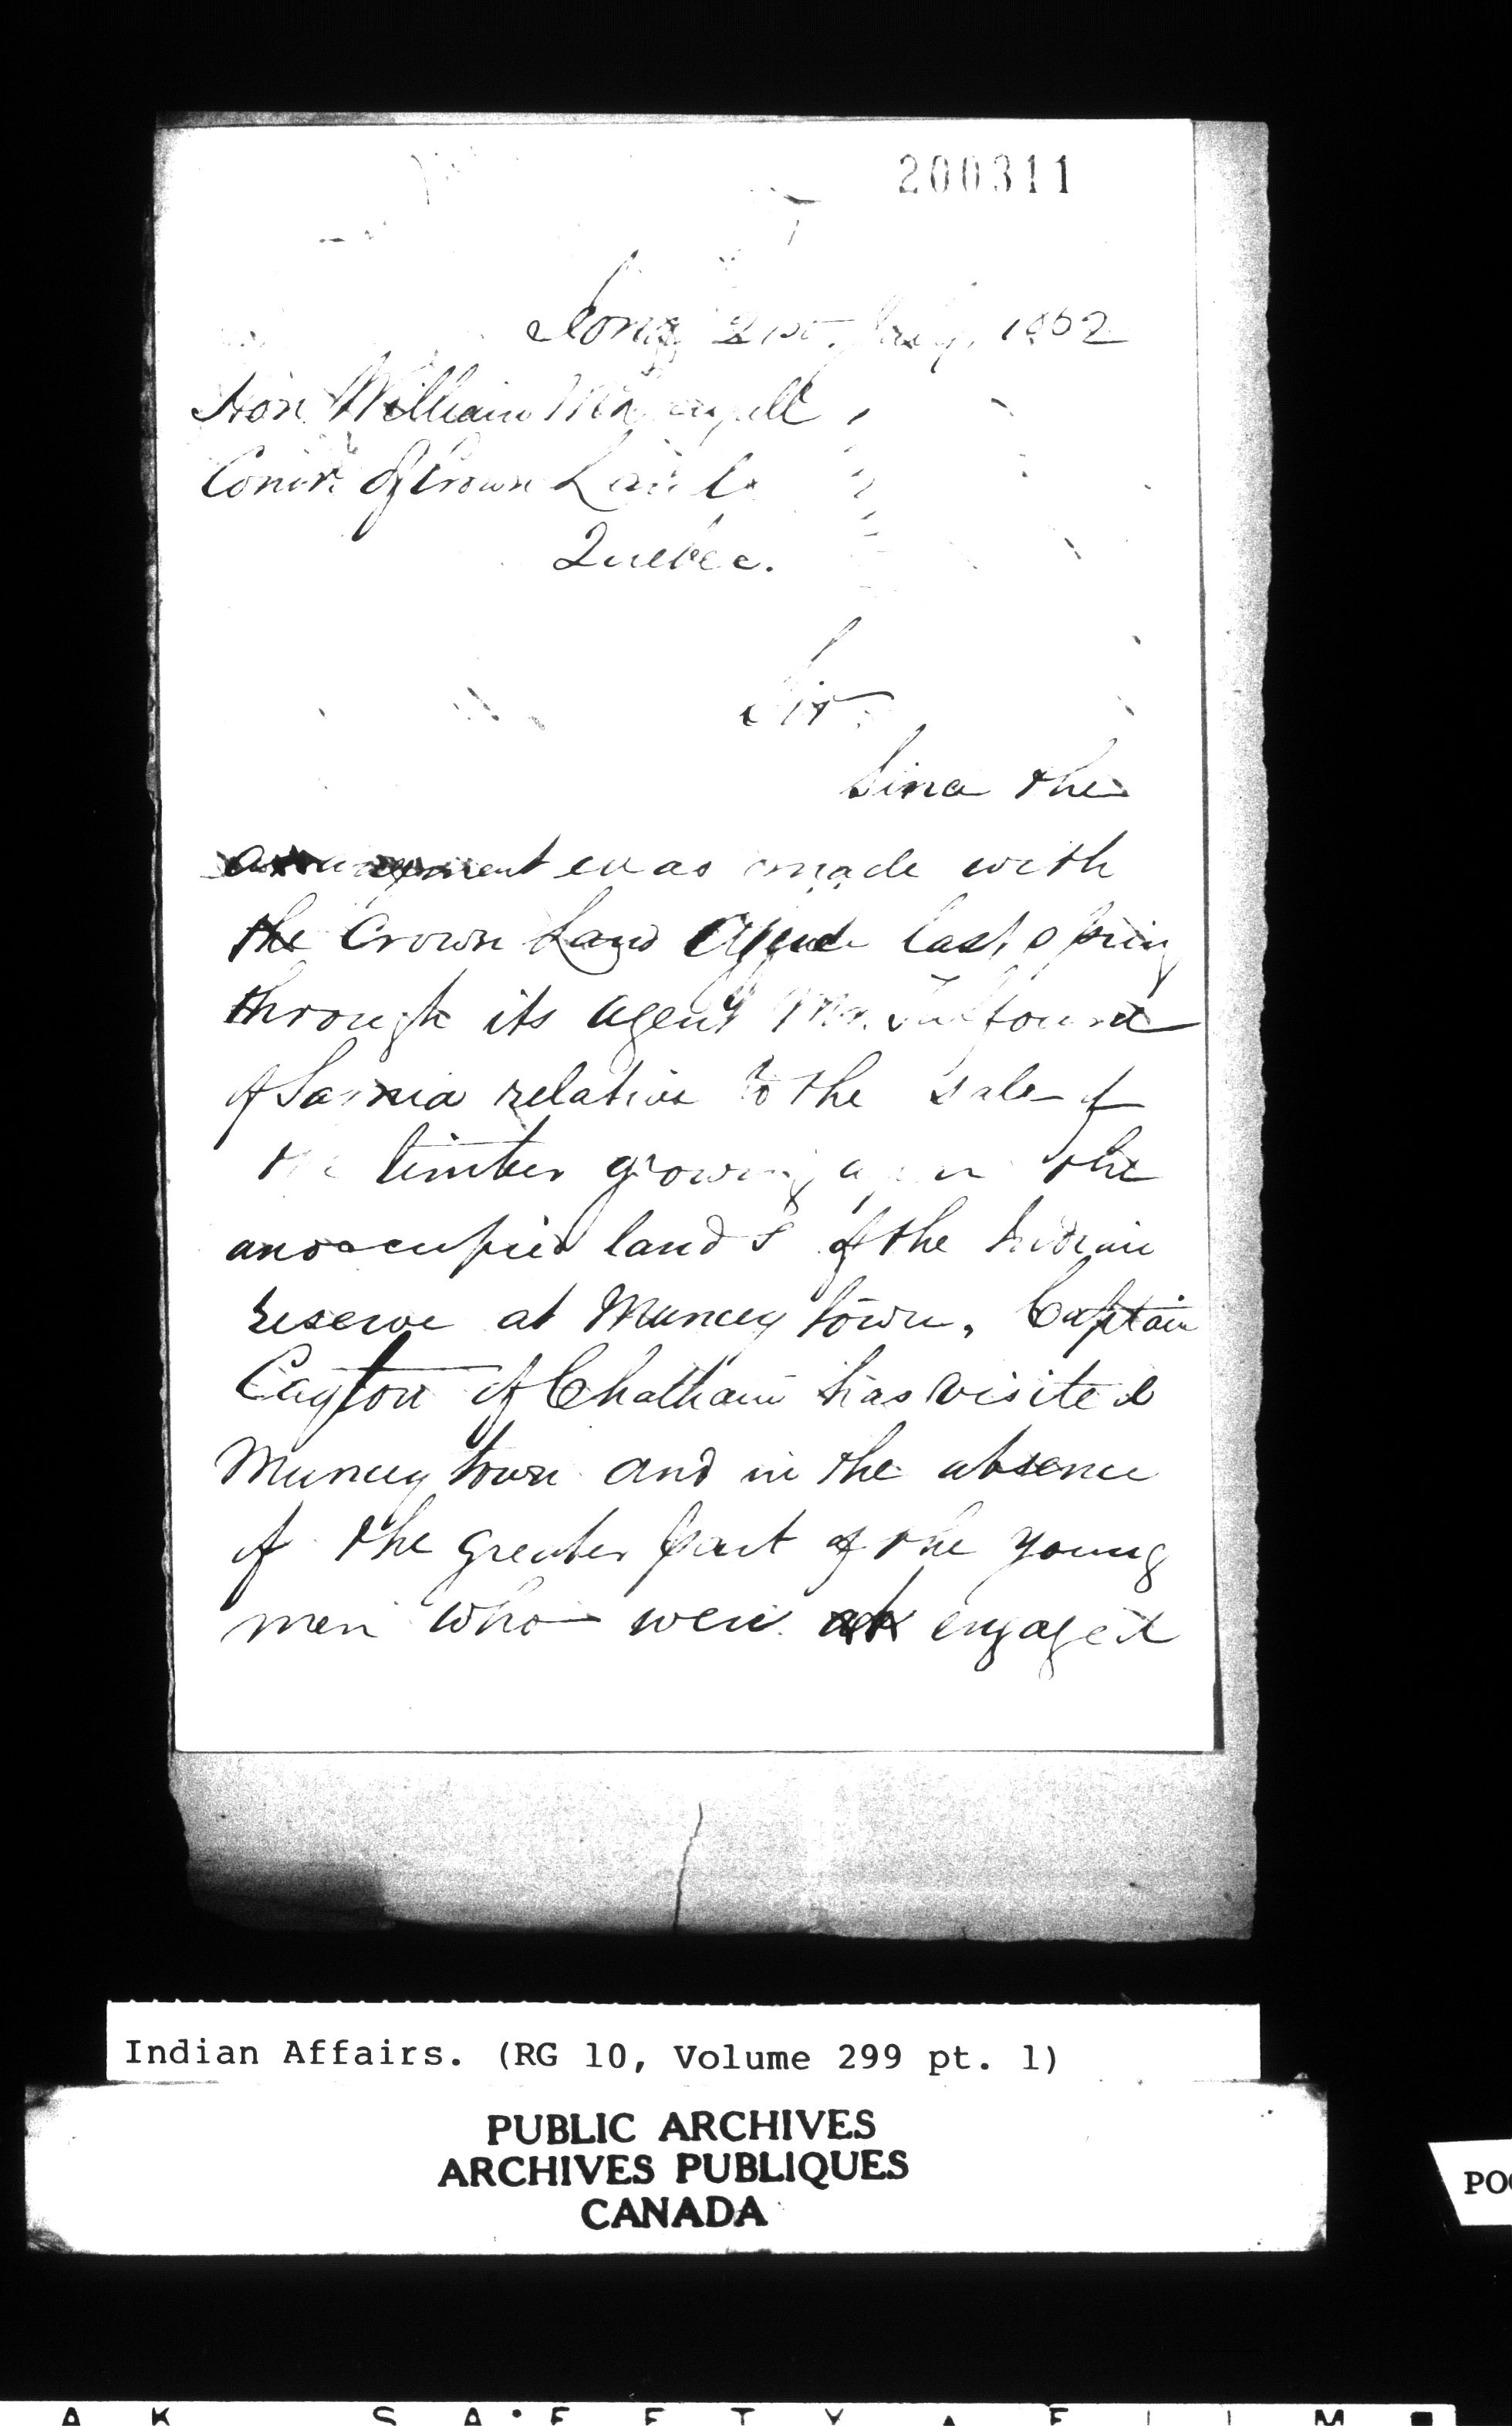 200311
Iona 21st July, 1862
Hon. William McDougall
Comr. of Crown Lands
Quebec.
Sir.
Since the
arrangement was made with
the Crown Land last spring
through its agent Mr.
of Sarnia relative to the sale of
the timber growing upon the
unoccupied lands of the Indian
reserve at Muncey town. Captain
Cayton of Chatham has visited
Muncey town and in the absence
of the greater part of the young
men who were engaged
Indian Affairs. (RG 10, Volume 299 pt. 1)
PUBLIC ARCHIVES
ARCHIVES PUBLIQUES
CANADA
PO
A K S A F E T Y F I L M